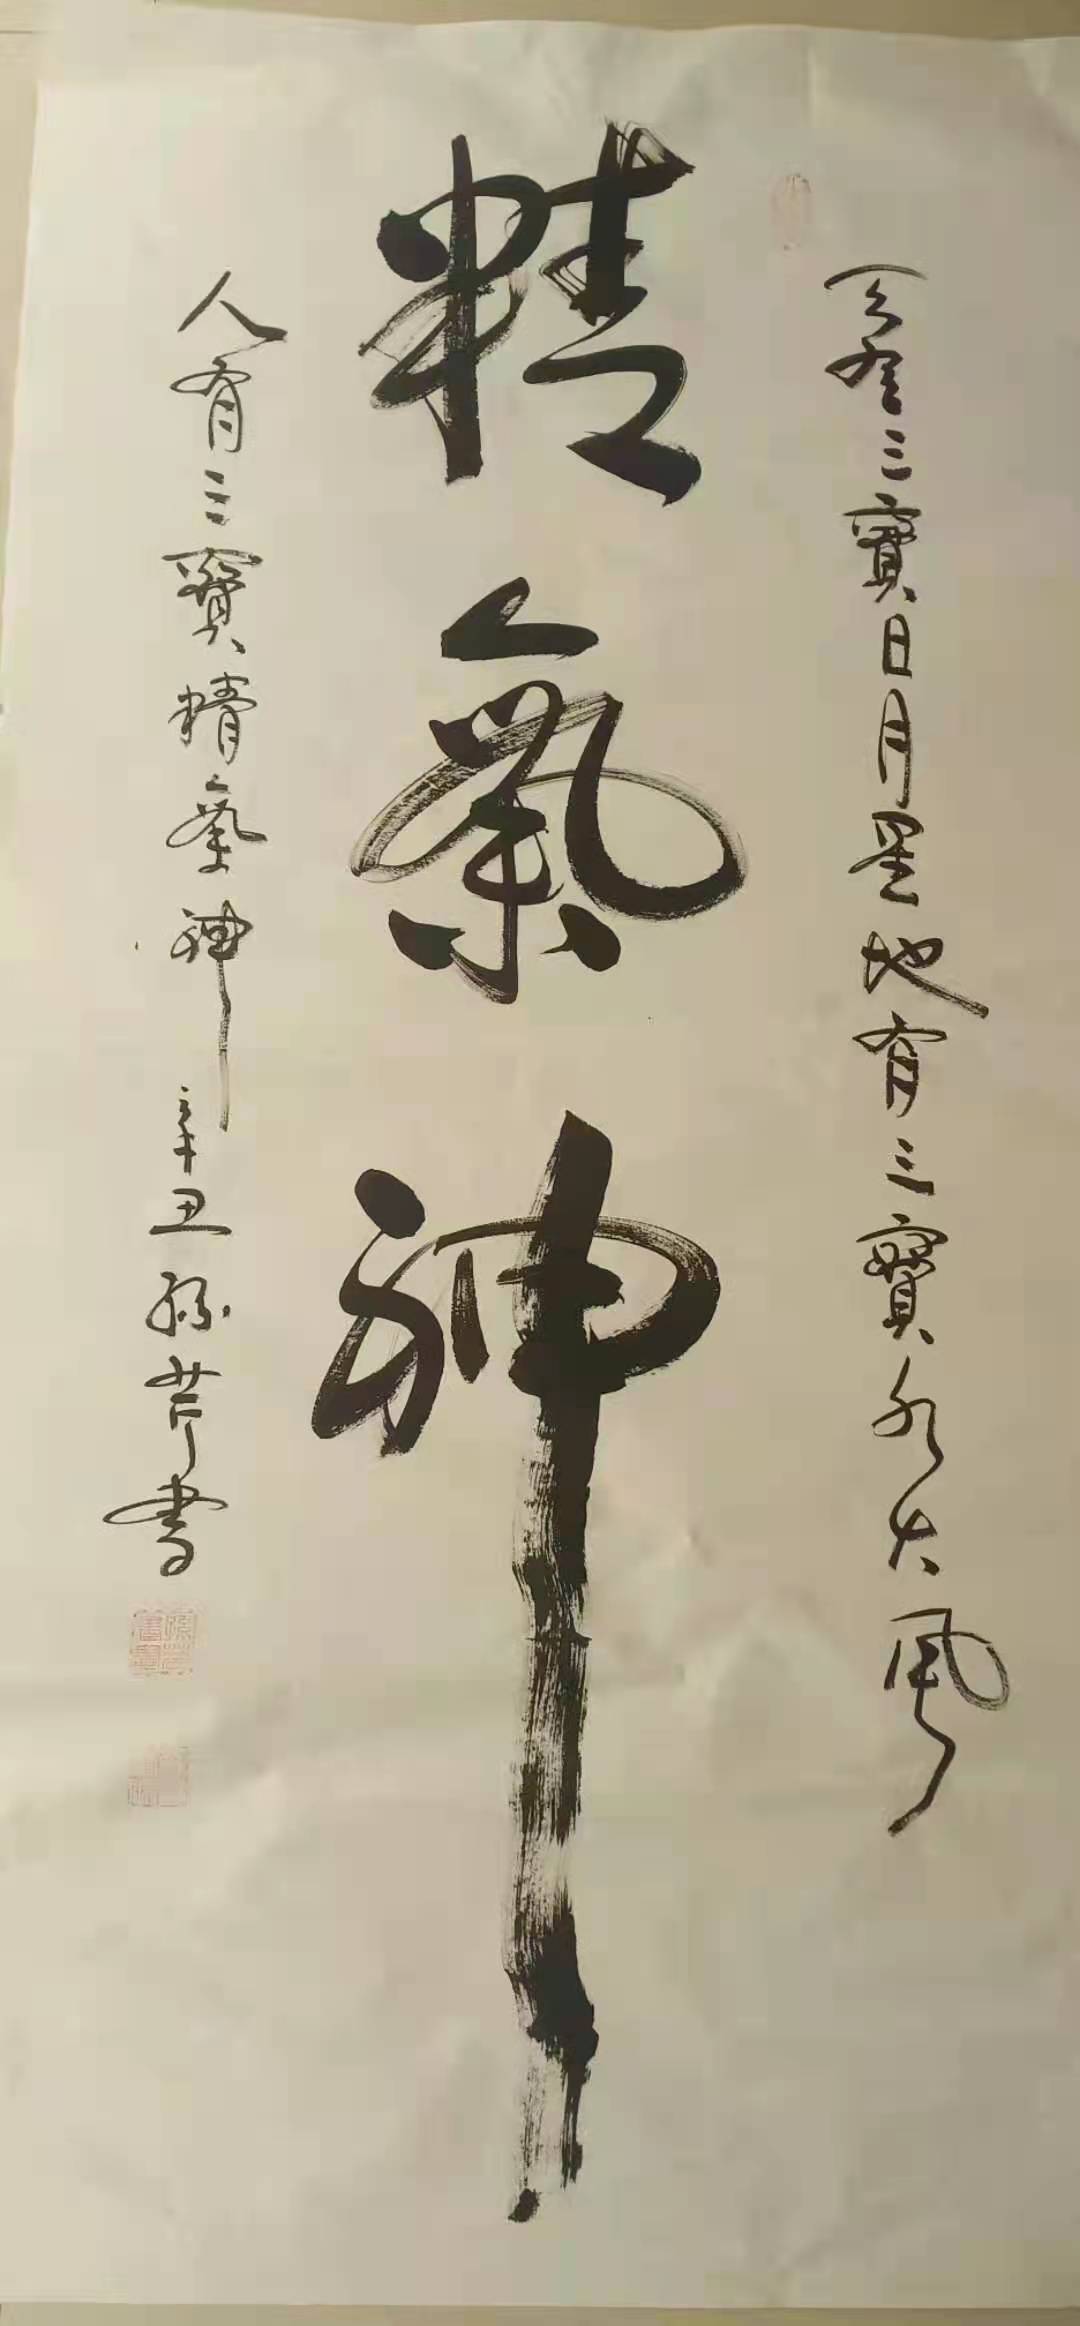 天有三寶日月星地有三寶水火風
精氣神
人有三寶精氣神 辛丑孫芹書